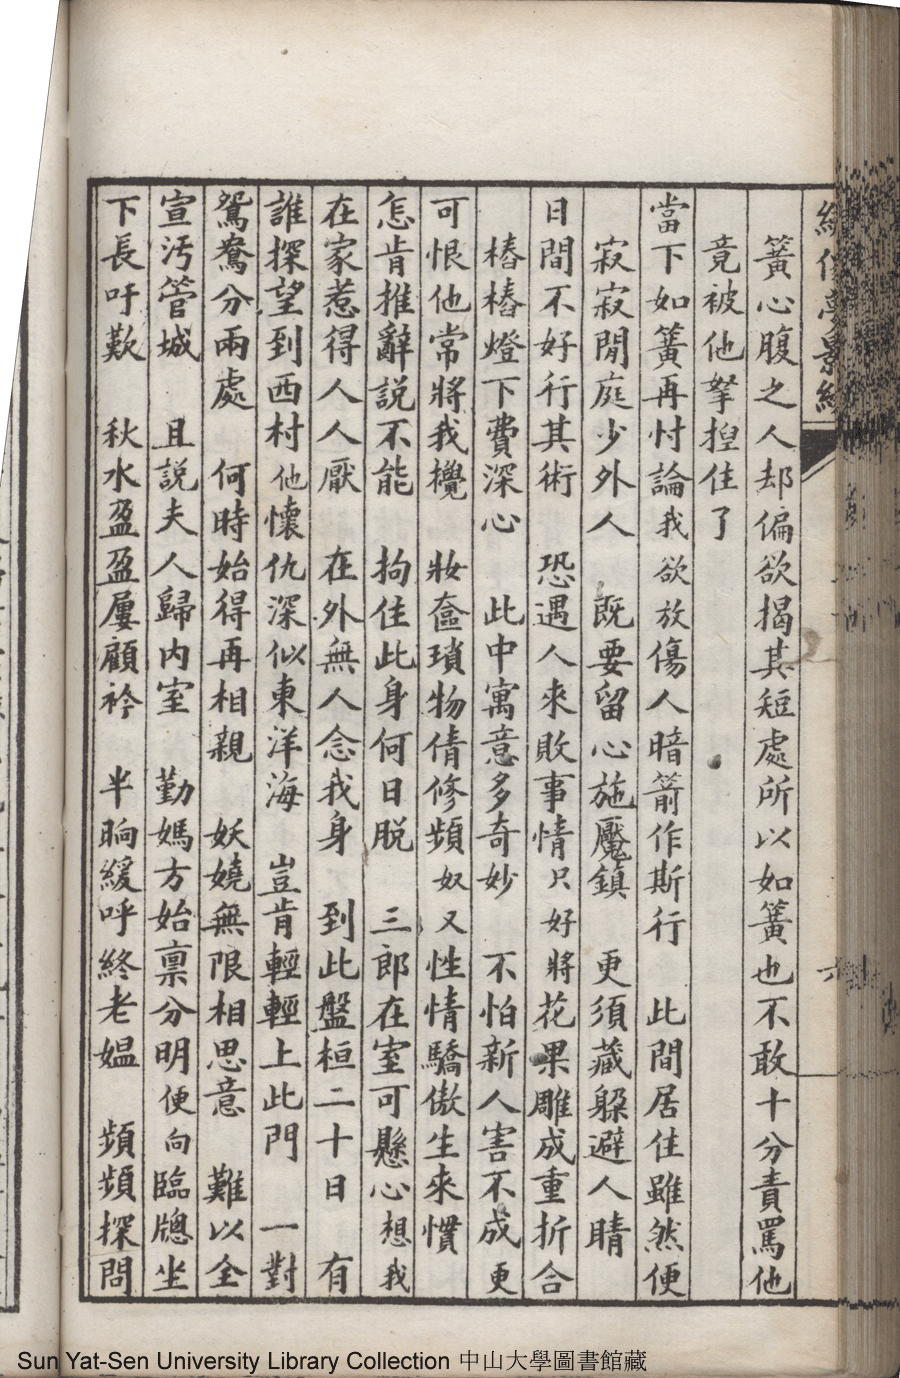 簧心腹之人却偏欲揭其短處所以如簧也不敢十分責罵他
竟被他拏揑住了
當下如簧再忖論我欲放傷人暗箭作斯行　此間居住雖然便
寂寂閒庭少外人　既要留心施魘鎮　更須藏躱避人睛
日間不好行其術　恐遇人來敗事情只好將花果雕成重折合
樁樁燈下費深心　此中寓意多奇妙　不怕新人害不成更
可恨他常將我攪　妝奩瑣物倩修頻奴又性情驕傲生來慣
怎肯推辭説不能　拘住此身何日脱　三郎在室可懸心想我
在家惹得人人厭　在外無人念我身　到此盤桓二十日　有
誰探望到西村他懷仇深似東洋海　豈肯輕輕上此門　一對
鴛鴦分兩處　何時始得再相親　妖嬈無限相思意　難以全
宣污管城　且説夫人歸内室　勤媽方始禀分明便向臨牕坐
下長吁歎　秋水盈盈屢顧衿　半晌緩呼終老媪　頻頻探問
Sun Yat-Sen University Library Collection 中山大學圖書館藏